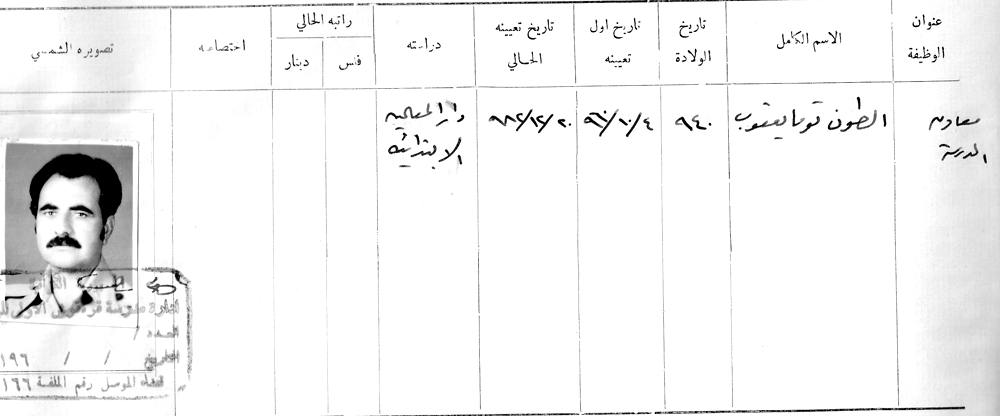 عنوان الوظيفة
الاسم الكامل
تاريخ الولادة
تاريخ اول تعيينه
تاريخ تعيينه الحالي
دراسته
راتبه الحالي
فلس
دينار
اختصاصه
تصويره الشمسي
معاون المدرسة
انطون توما يعقوب
٩٤٠
٩٦٠/١٠/٤
٩٨٢/١٢/٢٠
دار المعلمين الابتدائية
ادارة مدرسة قره قوش الاولى
العدد /
التاريخ / / ١٩٦
قضاء الموصل رقم الملفة ١٦٦